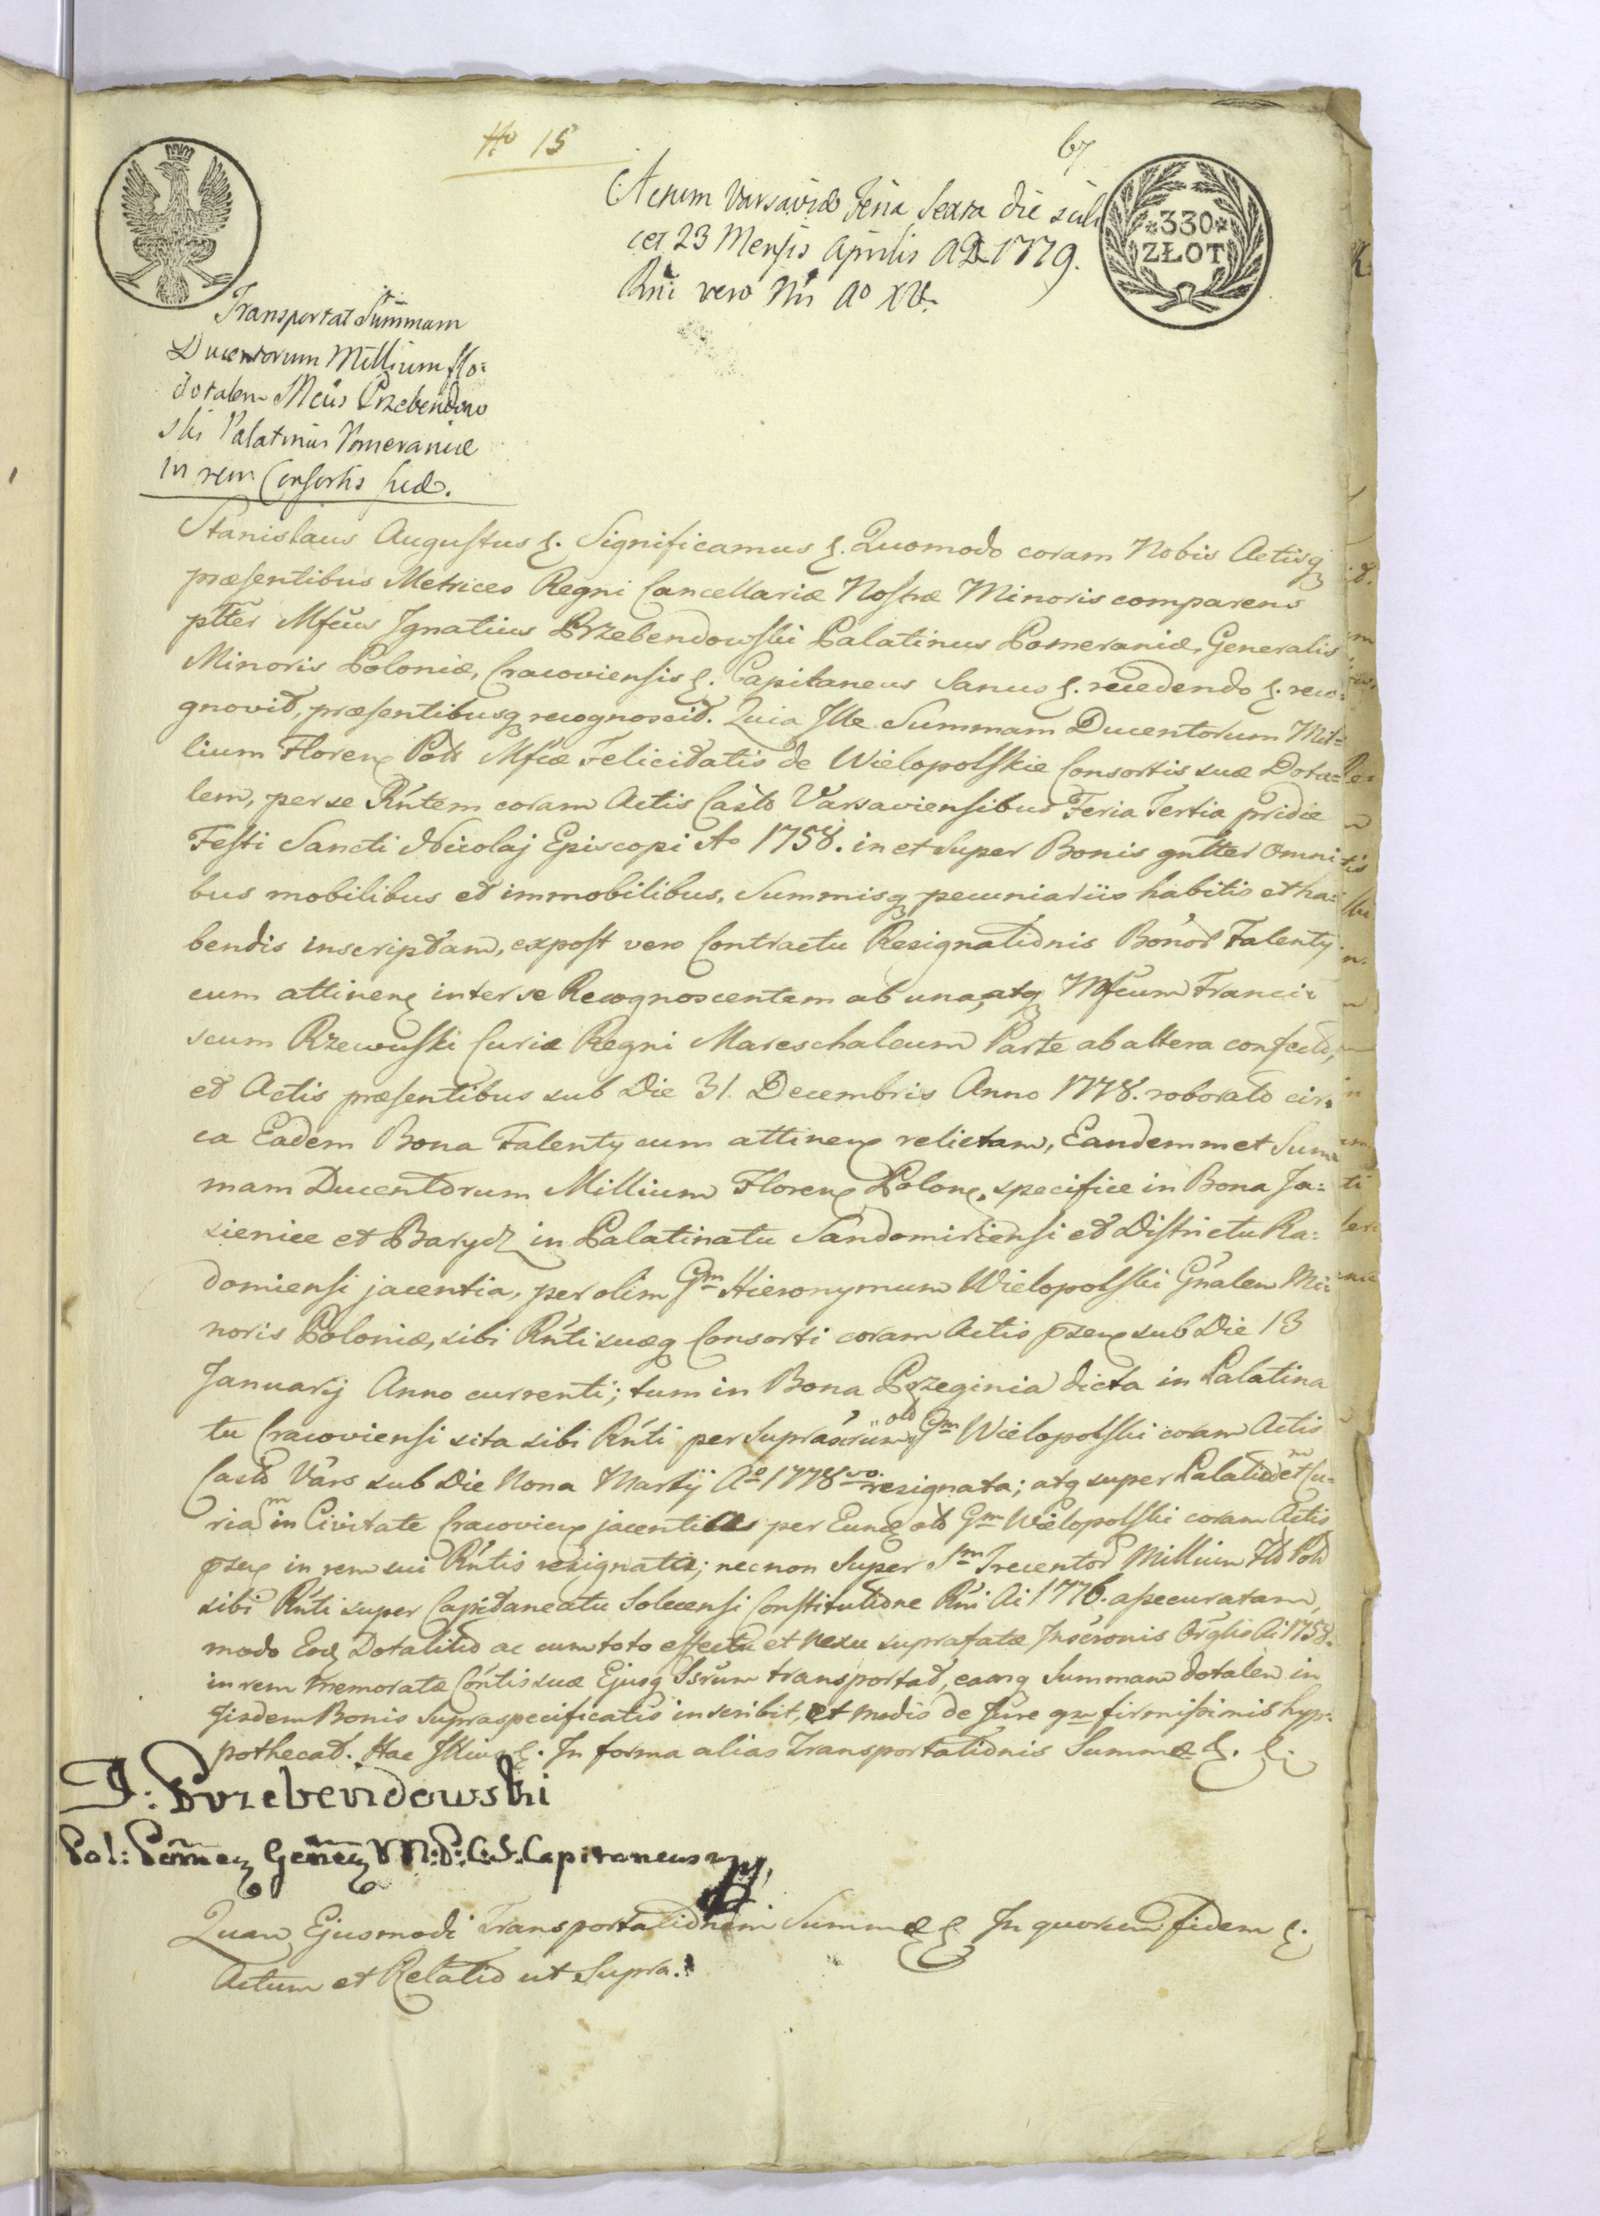 No 15
67
330
ZŁOT
Actum Varsaviæ Feria Sexta die scili
cet 23 Mensis Aprilis AD 1779.
Rni vero Nri Ao XV.
Transportat Summam
Ducentorum Millium flo:
dotalem Mcus Przebendow
ski Palatinus Pomeraniæ
in rem Consortis suæ.
Stanislaus Augustus &. Significamus &. Quomodo coram Nobis Actisq
præsentibus Metrices Regni Cancellariæ Nostræ Minoris comparens
pltter Mfcus Ignatius Przebendowski Palatinus Pomeraniæ, Generalis
Minoris Poloniæ, Cracoviensis &. Capitaneus Sanus &. recedendo &. reco:
gnovit, præsentibusq recognoscit. Quia Ille Summam Ducentorum Mil=
lium Floren Poll Mfcæ Felicitatis de Wielopolskie Consortis suæ Dota=
lem, per se Rntem coram Actis Castr Varsaviensibus Feria Tertia pridie
Festi Sancti Nicolaj Episcopi Ao 1758. in et super Bonis gnltter omni
bus mobilibus et immobilibus, Summisq pecuniariis habitis et ha=
bendis inscriptam, expost vero Contractu Resignationis Bonor Falenty
cum attinen inter se Recognoscentem ab una, atq Mfcum Franci:
scum Rzewuski Curiæ Regni Mareschalcum Parte ab altera confecto,
et Actis præsentibus sub Die 31. Decembris Anno 1778. roborato cir:
ca Eadem Bona Falenty cum attinen relictam, Eandemmet Sum
mam Ducentorum Millium Floren Polon. specifice in Bona Ja=
sieniec et Barycz in Palatinatu Sandomiriensi et Districtu Ra=
domiensi jacentia, per olim Gm Hieronymum Wielopolski Gnalem Mi
noris Poloniæ, sibi Rnti suæq Consorti coram Actis psen sub Die 13
Januarij Anno currenti; tum in Bona Przeginia dicta in Palatina
tu Cracoviensi sita sibi Rnti per Suprascrium olo Gm Wielopolski coram Actis
Castr Vars sub Die Nona Martij Ao 1778vo resignata; atq super Palatium et Cu=
riam in Civitate Cracovien jacentia per Eund olo Gm Wielopolski coram Actis
psen in rem sui Rntis resignata; necnon super Sm Trecentor Millium Flo Pol
sibi Rnti super Capitaneatu Solecensi Constitutione Rni Ai 1776. assecuratam,
modo Eod Dotalitio ac cum toto effectu et nexu suprafatæ Inscronis Orglis Ai 1758.
in rem memoratæ Contis suæ Ejusq Ssrum transportat, eamq Summam dotalem in
Iisdem Bonis supraspecificatis inscribit, et modis de Jure qm firmissimis hyp=
pothecat. Hac Illius &. In forma alias Transportationis Summæ &. &.
I: Przebendowski
Pal: Pomen Genen M:P:C:S:Capitaneus
Quam Ejusmodi Transportationem Summæ &. In quorum fidem &.
Actum et Relatio ut Supra.